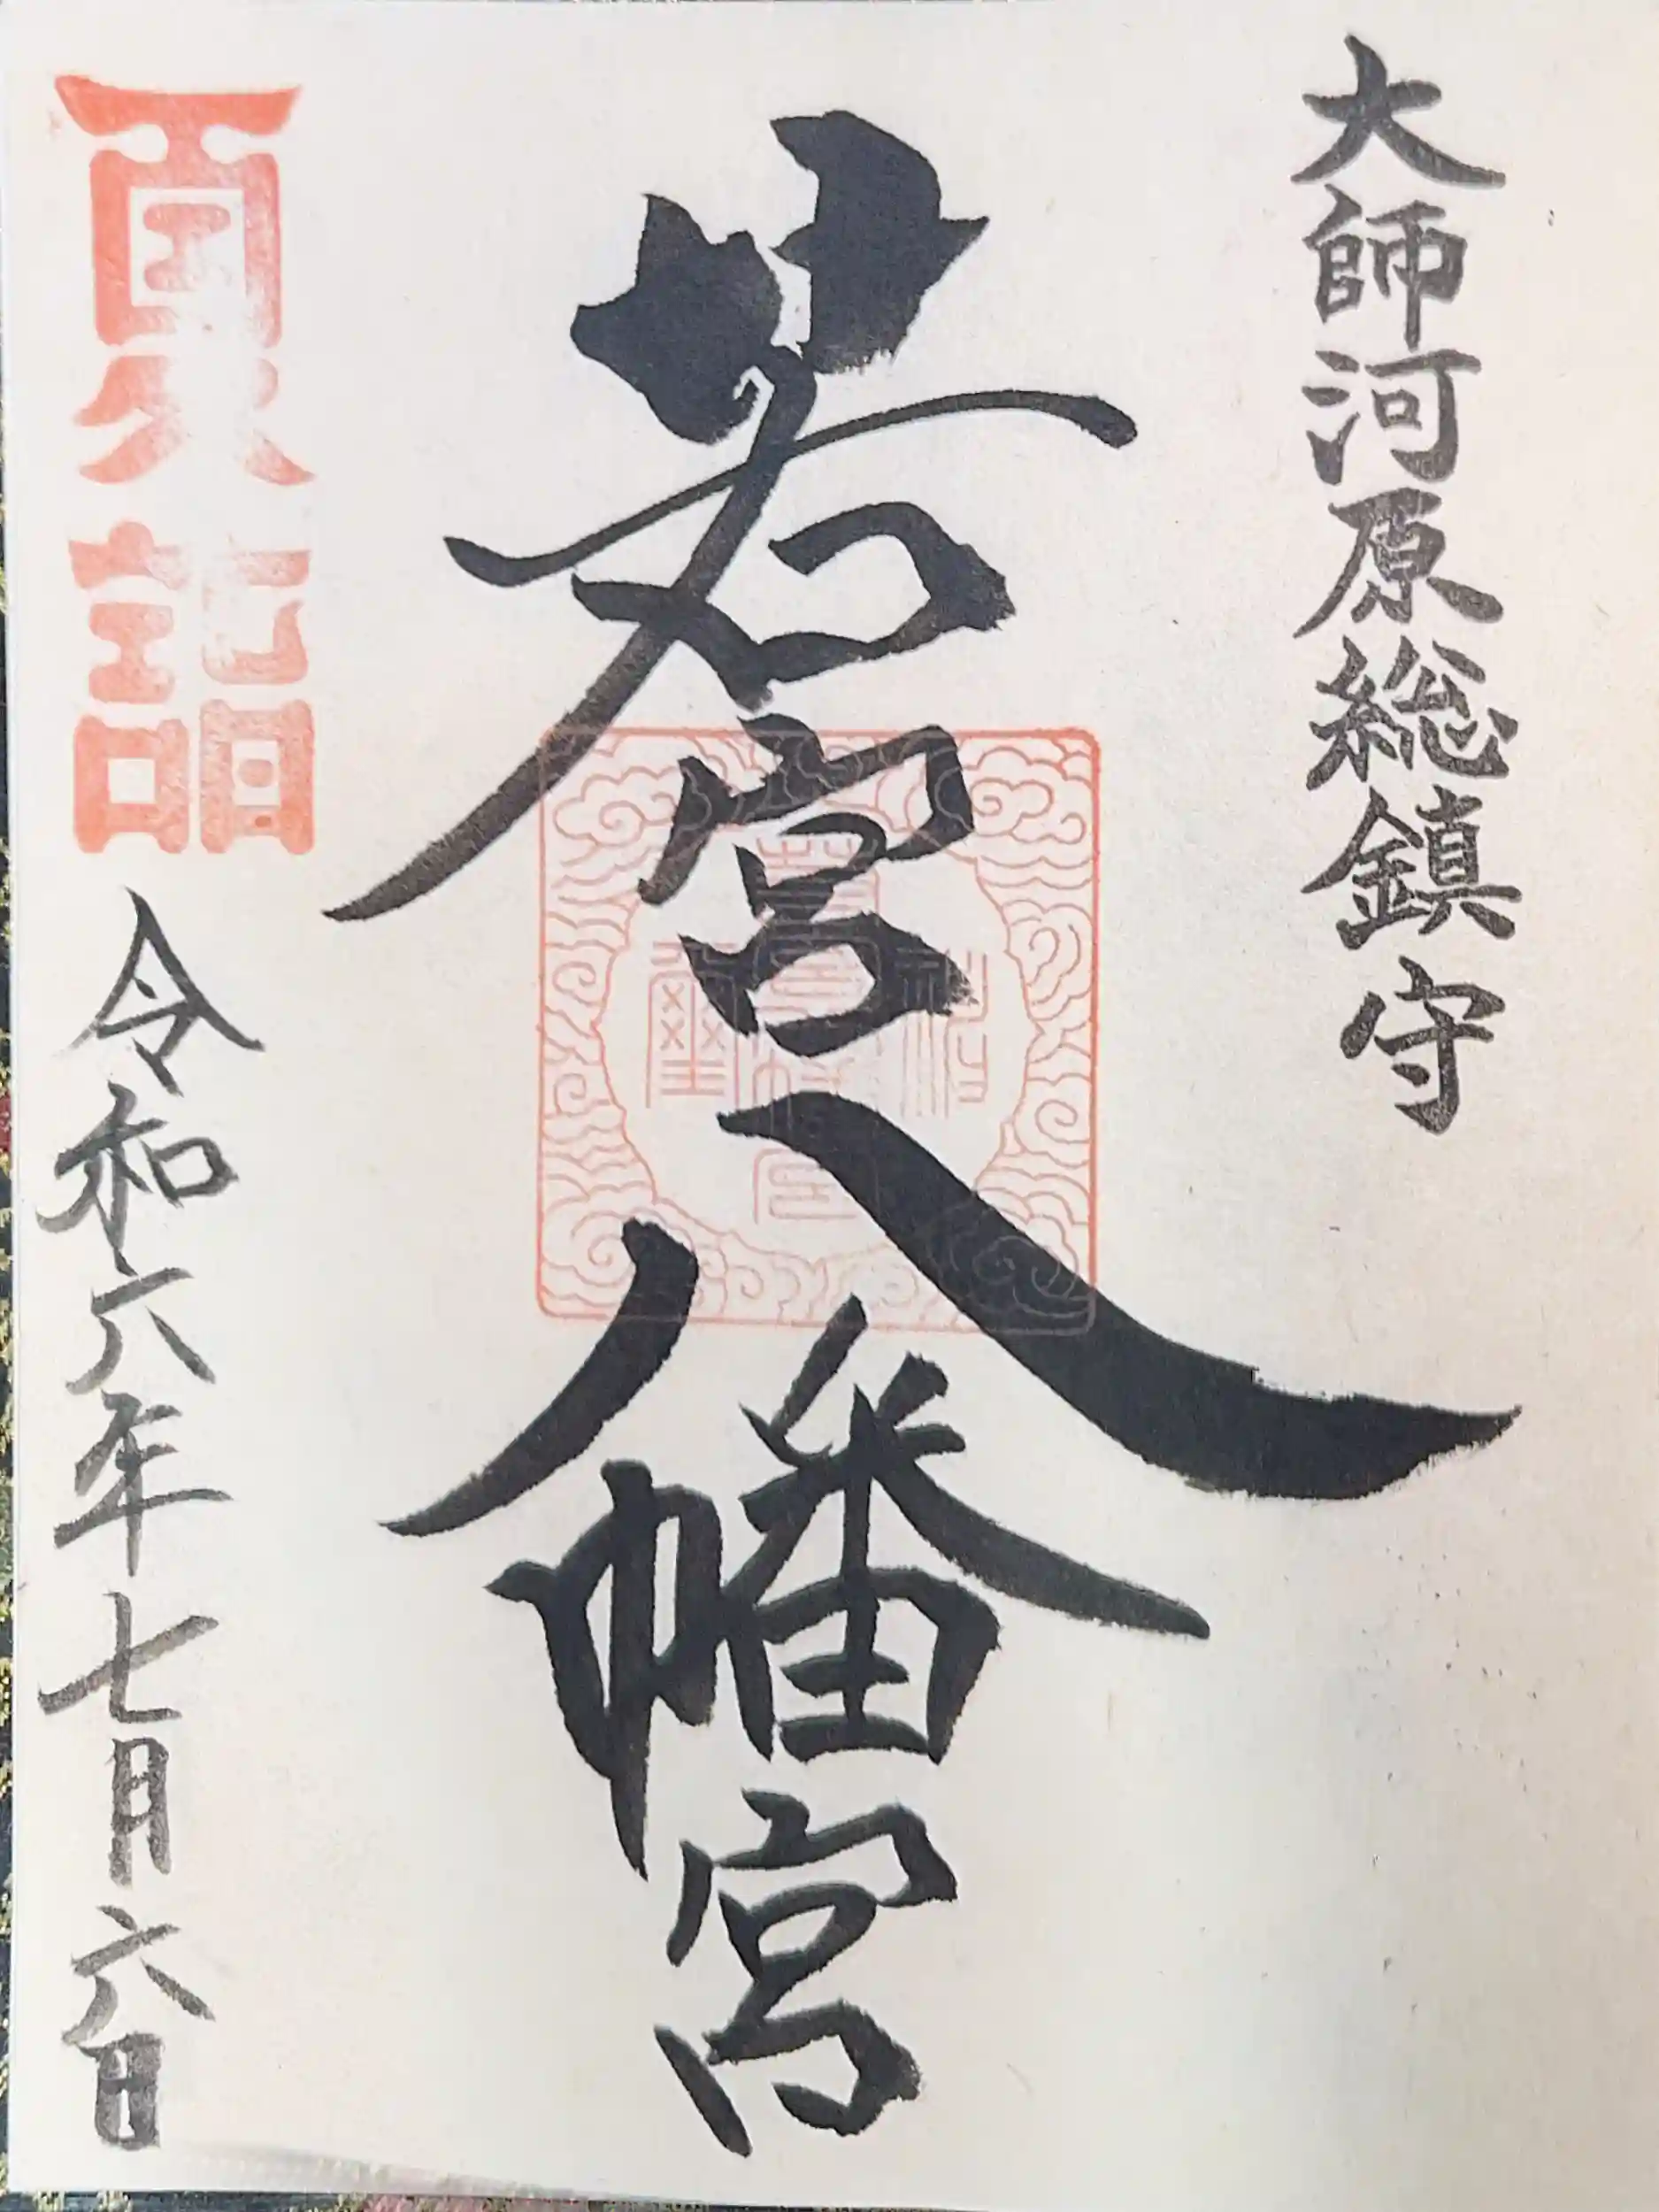 大師河原総鎮守
若宮八幡宮
夏詣
令和六年七月六日